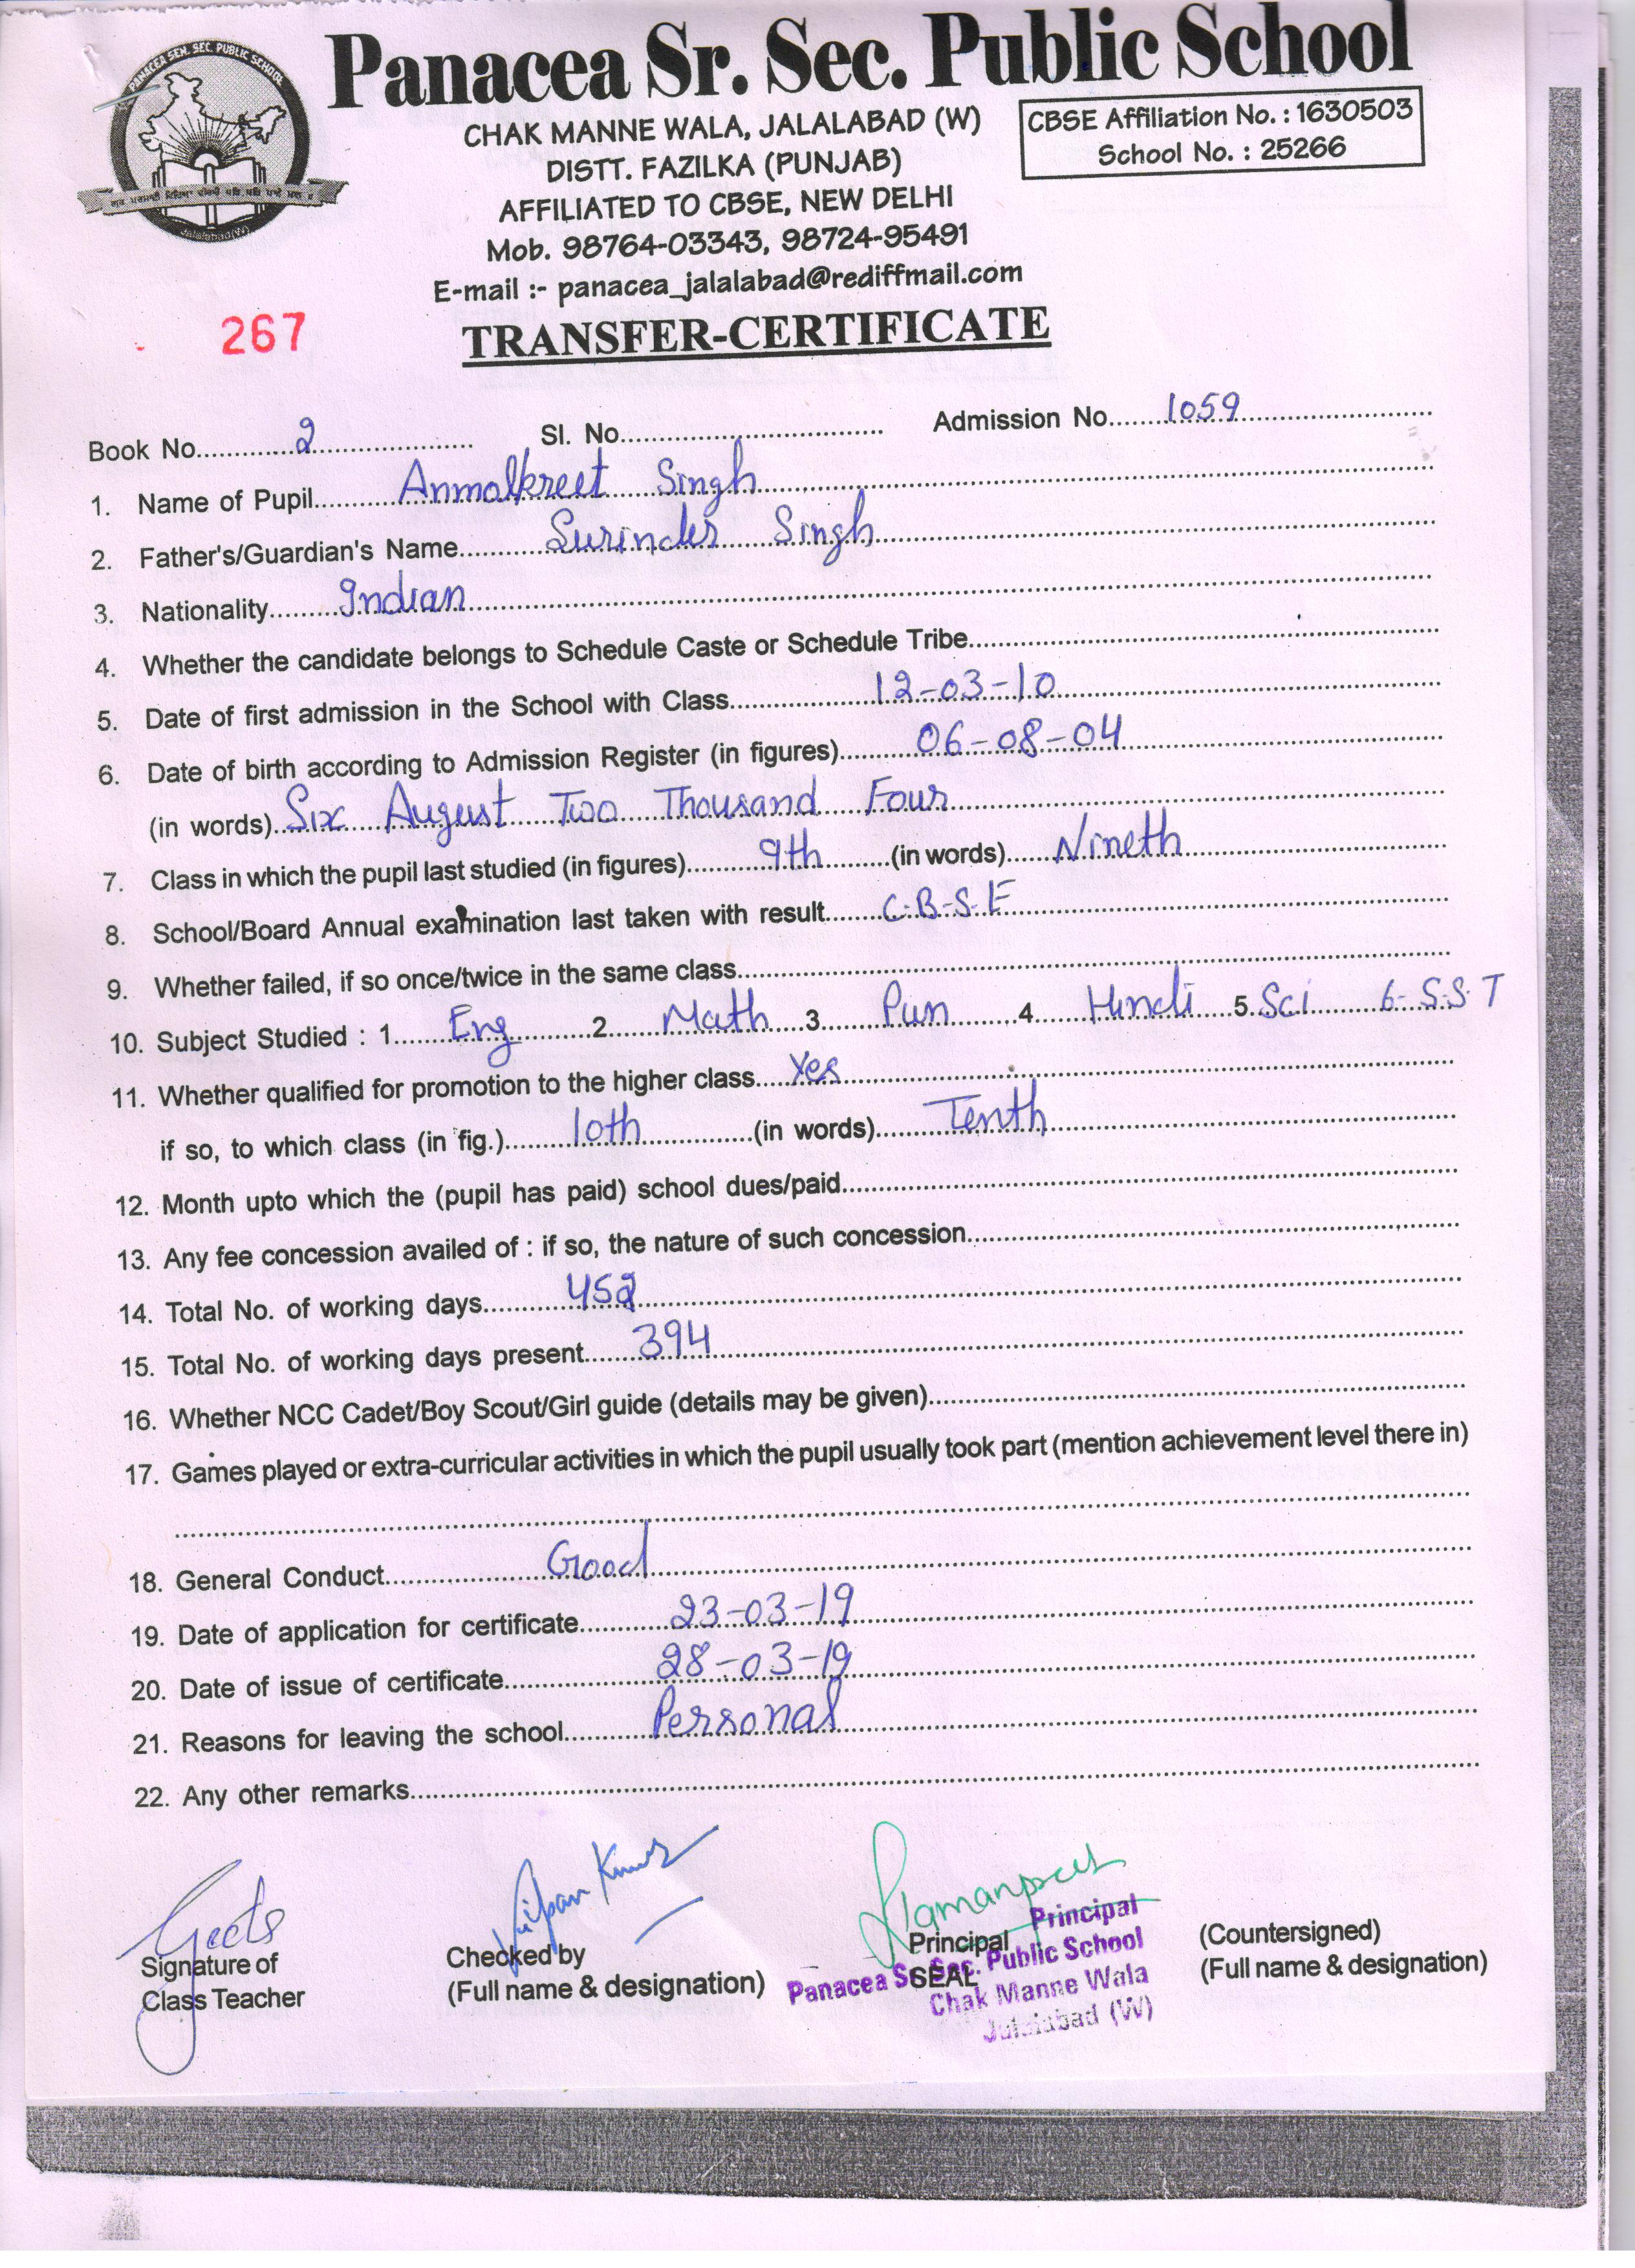 PANACEA SEN. SEC. PUBLIC SCHOOL
Jalalabad(W)
Panacea Sr. Sec. Public School
CHAK MANNE WALA, JALALABAD (W)
DISTT. FAZILKA (PUNJAB)
AFFILIATED TO CBSE, NEW DELHI
Mob. 98764-03343, 98724-95491
E-mail :- panacea_jalalabad@rediffmail.com
CBSE Affiliation No. : 1630503
School No. : 25266
267
TRANSFER-CERTIFICATE
Book No. 2 Sl. No. Admission No. 1059
1. Name of Pupil Anmolkreet Singh
2. Father's/Guardian's Name Surinder Singh
3. Nationality Indian
4. Whether the candidate belongs to Schedule Caste or Schedule Tribe
5. Date of first admission in the School with Class 12-03-10
6. Date of birth according to Admission Register (in figures) 06-08-04
(in words) Six August Two Thousand Four
7. Class in which the pupil last studied (in figures) 9th (in words) Nineth
8. School/Board Annual examination last taken with result C.B.S.E
9. Whether failed, if so once/twice in the same class
10. Subject Studied : 1 Eng 2 Math 3 Pun 4 Hindi 5 Sci 6- S.S T
11. Whether qualified for promotion to the higher class Yes
if so, to which class (in fig.) 10th (in words) Tenth
12. Month upto which the (pupil has paid) school dues/paid
13. Any fee concession availed of : if so, the nature of such concession
14. Total No. of working days 452
15. Total No. of working days present 394
16. Whether NCC Cadet/Boy Scout/Girl guide (details may be given)
17. Games played or extra-curricular activities in which the pupil usually took part (mention achievement level there in)
18. General Conduct Good
19. Date of application for certificate 23-03-19
20. Date of issue of certificate 28-03-19
21. Reasons for leaving the school Personal
22. Any other remarks
Geets
Vipan Kumar
Signature of
Class Teacher
Checked by
(Full name & designation)
Principal
SEAL
Principal
Panacea Sr. Sec. Public School
Chak Manne Wala
Jalalabad (W)
(Countersigned)
(Full name & designation)